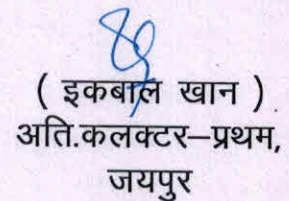 ( इकबाल खान )
अति.कलक्टर–प्रथम,
जयपुर